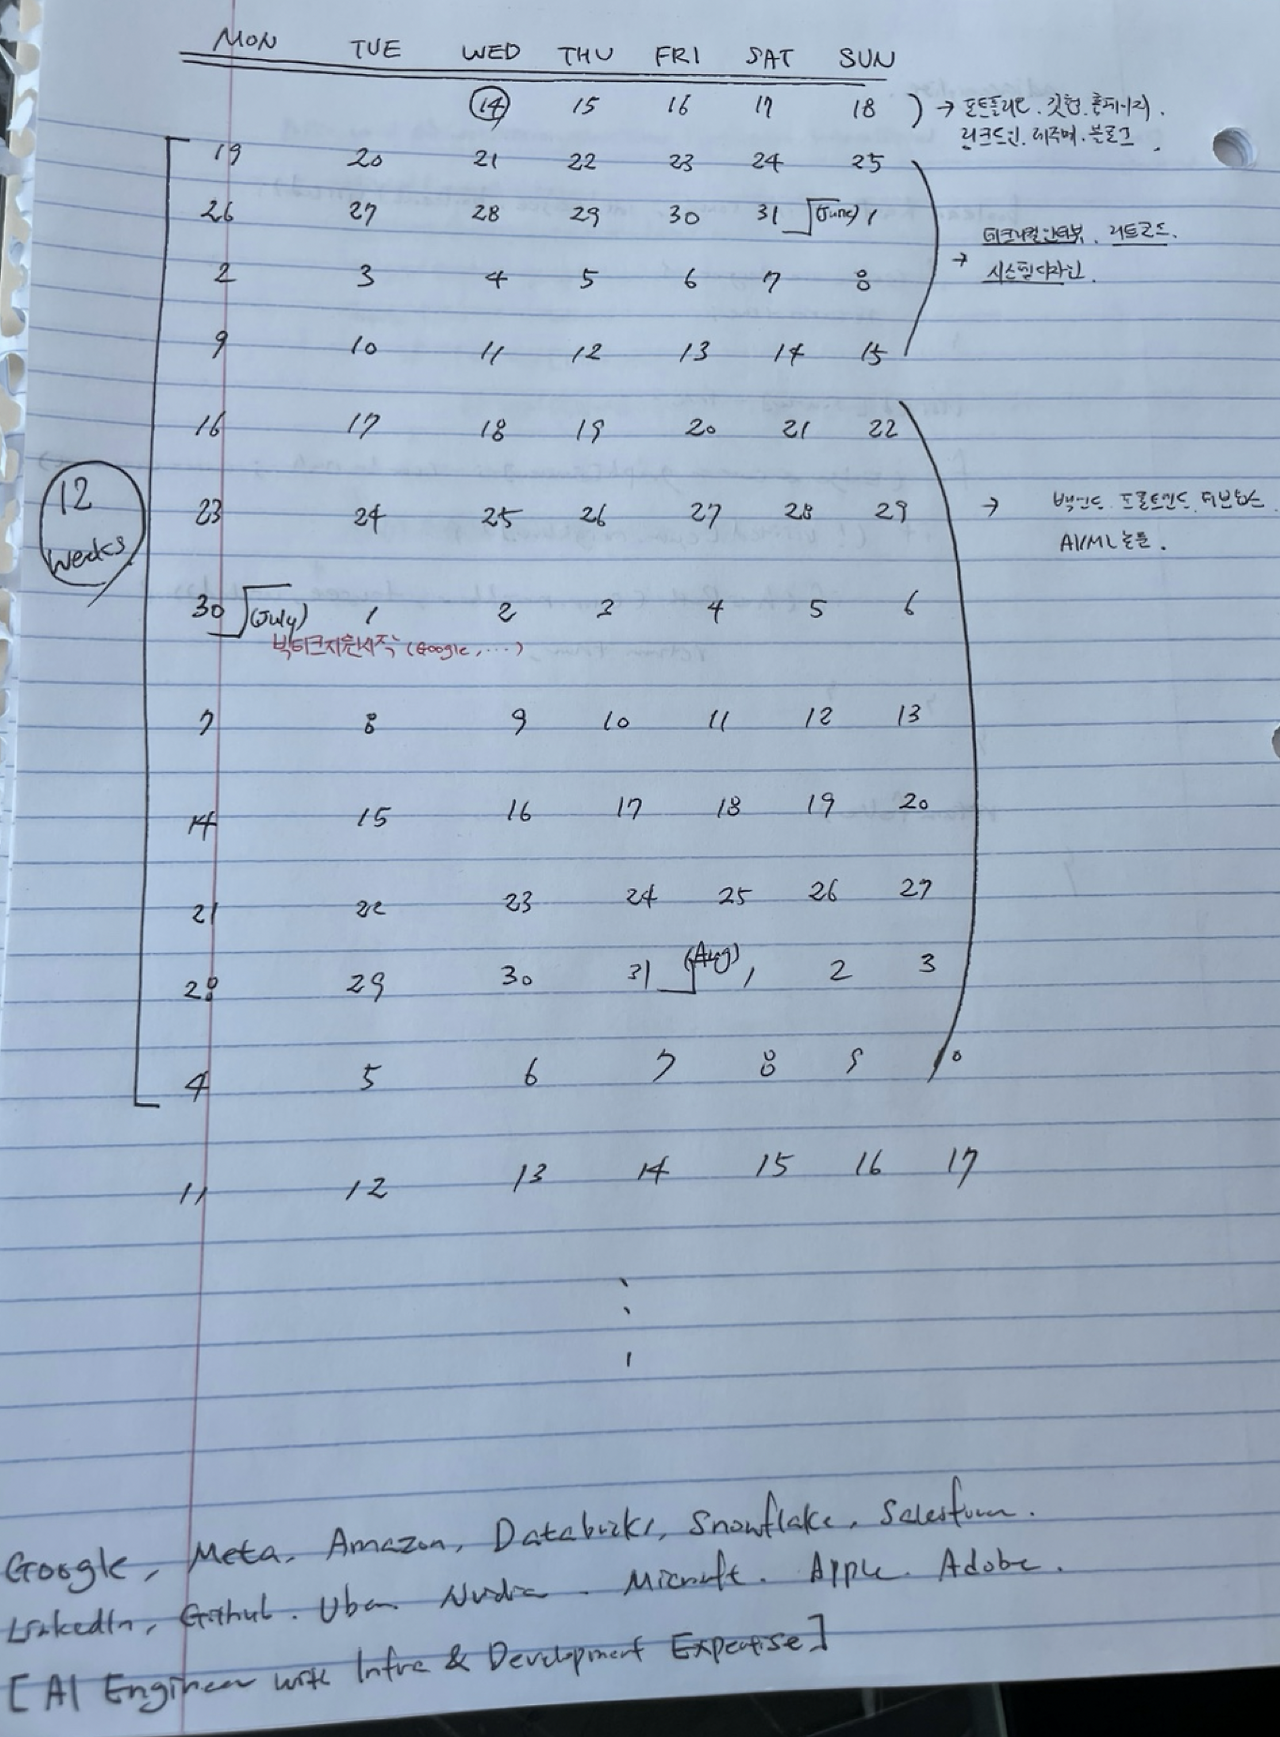 MON TUE WED THU FRI SAT SUN
14 15 16 17 18 ) → 포트폴리오. 깃헙. 홈페이지.
링크드인. 레주메. 블로그.
19 20 21 22 23 24 25
26 27 28 29 30 31 (June) 1
→ 테크니컬 인터뷰. 리트코드.
시스템디자인.
2 3 4 5 6 7 8
9 10 11 12 13 14 15
16 17 18 19 20 21 22
12 weeks
23 24 25 26 27 28 29 → 백엔드. 프론트엔드. 데브옵스.
AI/ML 논문.
30 (July) 1 2 3 4 5 6
빅테크지원시작 (Google, ...)
7 8 9 10 11 12 13
14 15 16 17 18 19 20
21 22 23 24 25 26 27
28 29 30 31 (Aug) 1 2 3
4 5 6 7 8 9 10
11 12 13 14 15 16 17
Google, Meta, Amazon, Databricks, Snowflake, Salesforce.
LinkedIn, Github. Uber Nvidia. Microsoft. Apple. Adobe.
[AI Engineer with Infra & Development Expertise]